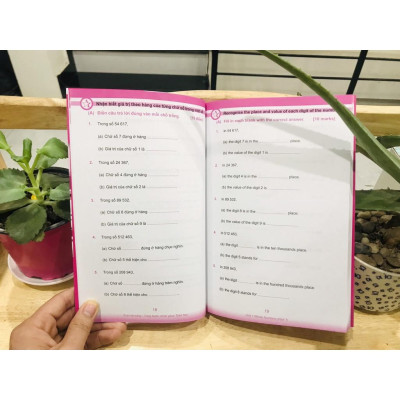 Nhận biết giá trị theo hàng của từng chữ số trong
(A) Điền câu trả lời đúng vào mỗi chỗ trống.
1. Trong số 54 617,
(a) Chữ số 7 đứng ở hàng
(b) Giá trị của chữ số 1 là
2. Trong số 24 367,
(a) Chữ số 4 đứng ở hàng
(b) Giá trị của chữ số 2 là
3. Trong số 89 532,
(a) Chữ số 8 đứng ở hàng
(b) Giá trị của chữ số 9 là
4. Trong số 612 460,
(a) Chữ số đứng ở hàng chục nghìn.
(b) Chữ số 6 thể hiện cho
5. Trong số 308 940,
(a) Chữ số đứng ở hàng trăm nghìn.
(b) Chữ số 8 thể hiện cho
Recognise the place and value of each digit of the
(A) Fill in each blank with the correct answer.
(10 marks)
1. In 54 617,
(a) the digit 7 is in the place.
(b) the value of the digit 1 is
2. In 24 367,
(a) the digit 4 is in the place.
(b) the value of the digit 2 is
3. In 89 532,
(a) the digit 8 is in the place.
(b) the value of the digit 9 is
4. In 612 460,
(a) the digit is in the ten thousands place.
(b) the digit 6 stands for
5. In 308 940,
(a) the digit is in the hundred thousands place.
(b) the digit 8 stands for